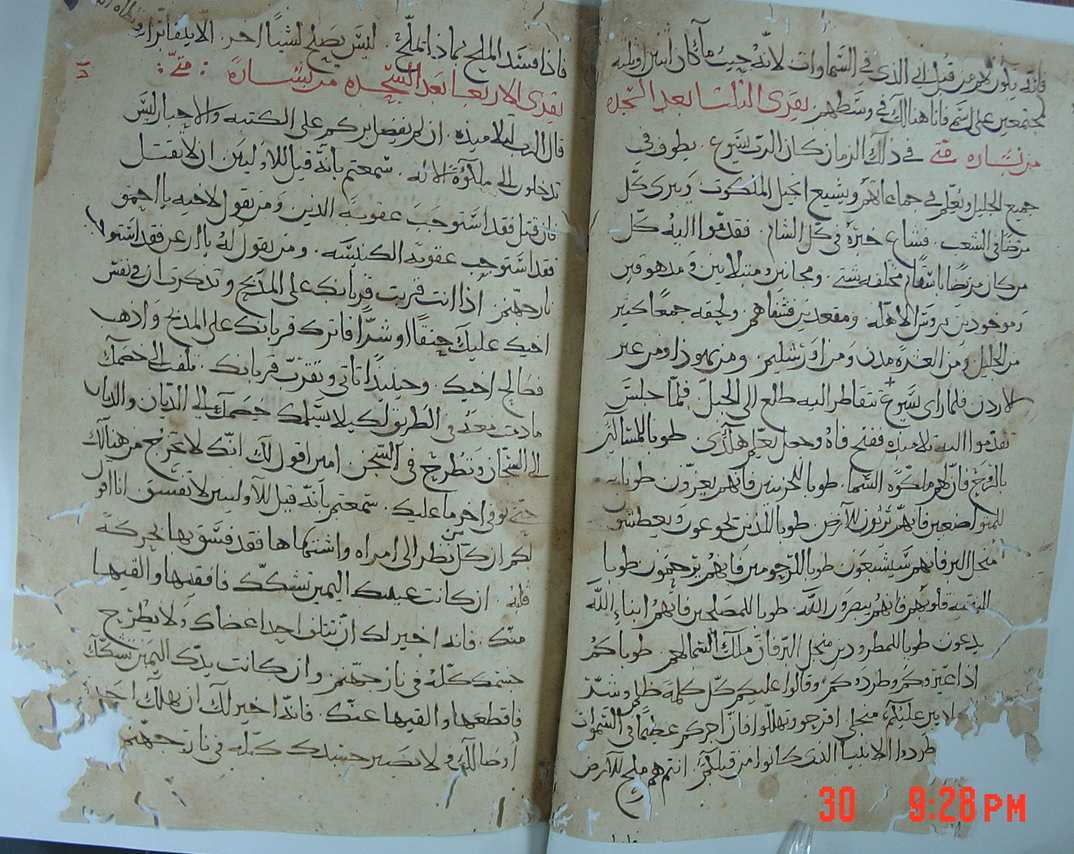 فانه يكون لهم من قبل ابي الذي في السماوات لانه حيث ما كان اثنين او ثلثه
مجتمعين على اسمي فانا هنالك في وسطهم يقرى الثلاثا بعد السجده
من بشاره متى في ذلك الزمان كان الرب يسوع يطوف في
جميع الجليل ويعلم في جماعاتهم ويشيع انجيل الملكوت ويبرى كل
مرضا في الشعب فشاع خبره في كل الشام فقدموا اليه كل
من كان مريضا باسقام مختلفه شتى ومجانين ومبتلايين ومدهوقين
وموجودين بروس الاهله ومقعدين فشفاهم ولحقه جمعا كثير
من الجليل ومن العشره مدن ومن اورشليم ومن يهوذا ومن عبر
الاردن فلما راى يسوع تقاطر اليه طلع الى الجبل فلما جلس
تقدموا اليه تلاميذه ففتح فاه وجعل يعلم هكذى طوبا للمساكين
بالروح فان لهم ملكوة السما طوبا للحزينين فانهم يعزون طوبا
للمتواضعين فانهم يرثون الارض طوبا للذين يجوعون ويعطشون
من اجل البر فانهم سيشبعون طوبا للرحومين فانهم يرحمون طوبا
النقيه قلوبهم فانهم يبصرون الله طوبا للمصلحين فانهم ابناء الله
يدعون طوبا للمطرودين من اجل البر فان ملك السما لهم طوباكم
اذا عيروكم وطردوكم وقالوا عليكم كل كلمه ظلم وشر
كادبين عليكم من اجلي افرحو وتهللوا فان اجركم عظيما في السموات
طردوا الانبيا الذين كانوا من قبلكم انتم هم ملح الارض
فاذا فسد الملح بماذا يملح ليس يصلح لشيا اخر الا يلقا برا
يقرى الاربعا بعد السجده من بشارة متى
قال الرب لتلاميذه ان لم يفضل بركم على الكتبه والاحبار ليس
تدخلون الى ملكوة الله سمعتم بانه قيل للاوليين ان لا يقتل
فان قتل فقد استوجب عقوبه الدين ومن يقول لاخيه يا احمق
فقد استوجب عقوبه الكنيسه ومن يقول له يا ارعن فقد استوجب
نار جهنم اذا انت قربت قربانك على المذبح وتذكرت ان في نفس
اخيك عليك حنقا او شرا فاترك قربانك على المذبح واذهب
فصالح اخيك وحينيذا تاتي وتقرب قربانك ملقف الى خصمك
ما دمت معه في الطريق لكيلا يسلمك خصمك الى الديان والديان
الى السجان وتطرح في السجن امين اقول لك انك لا تخرج من هنالك
حتى توفي اخر ما عليك سمعتم بانه قيل للاوليين لا تفسق انا اقول
لكم ان كل من نظر الى امراه واشتهاها فقد فسق بها بحركة
قلبه ان كانت عينك اليمين تشكك فافقيها والقيها
منك فانه اخير لك ان تتلف احدا عضاك ولا يطرح
جسدك كله في نار جهنم وان كانت يدك اليمين تشكك
فاقطعها والقيها عنك فانه اخير لك ان يهلك احد
اعضاك ولا يصير جسدك كله في نار جهنم
30 9:28 PM